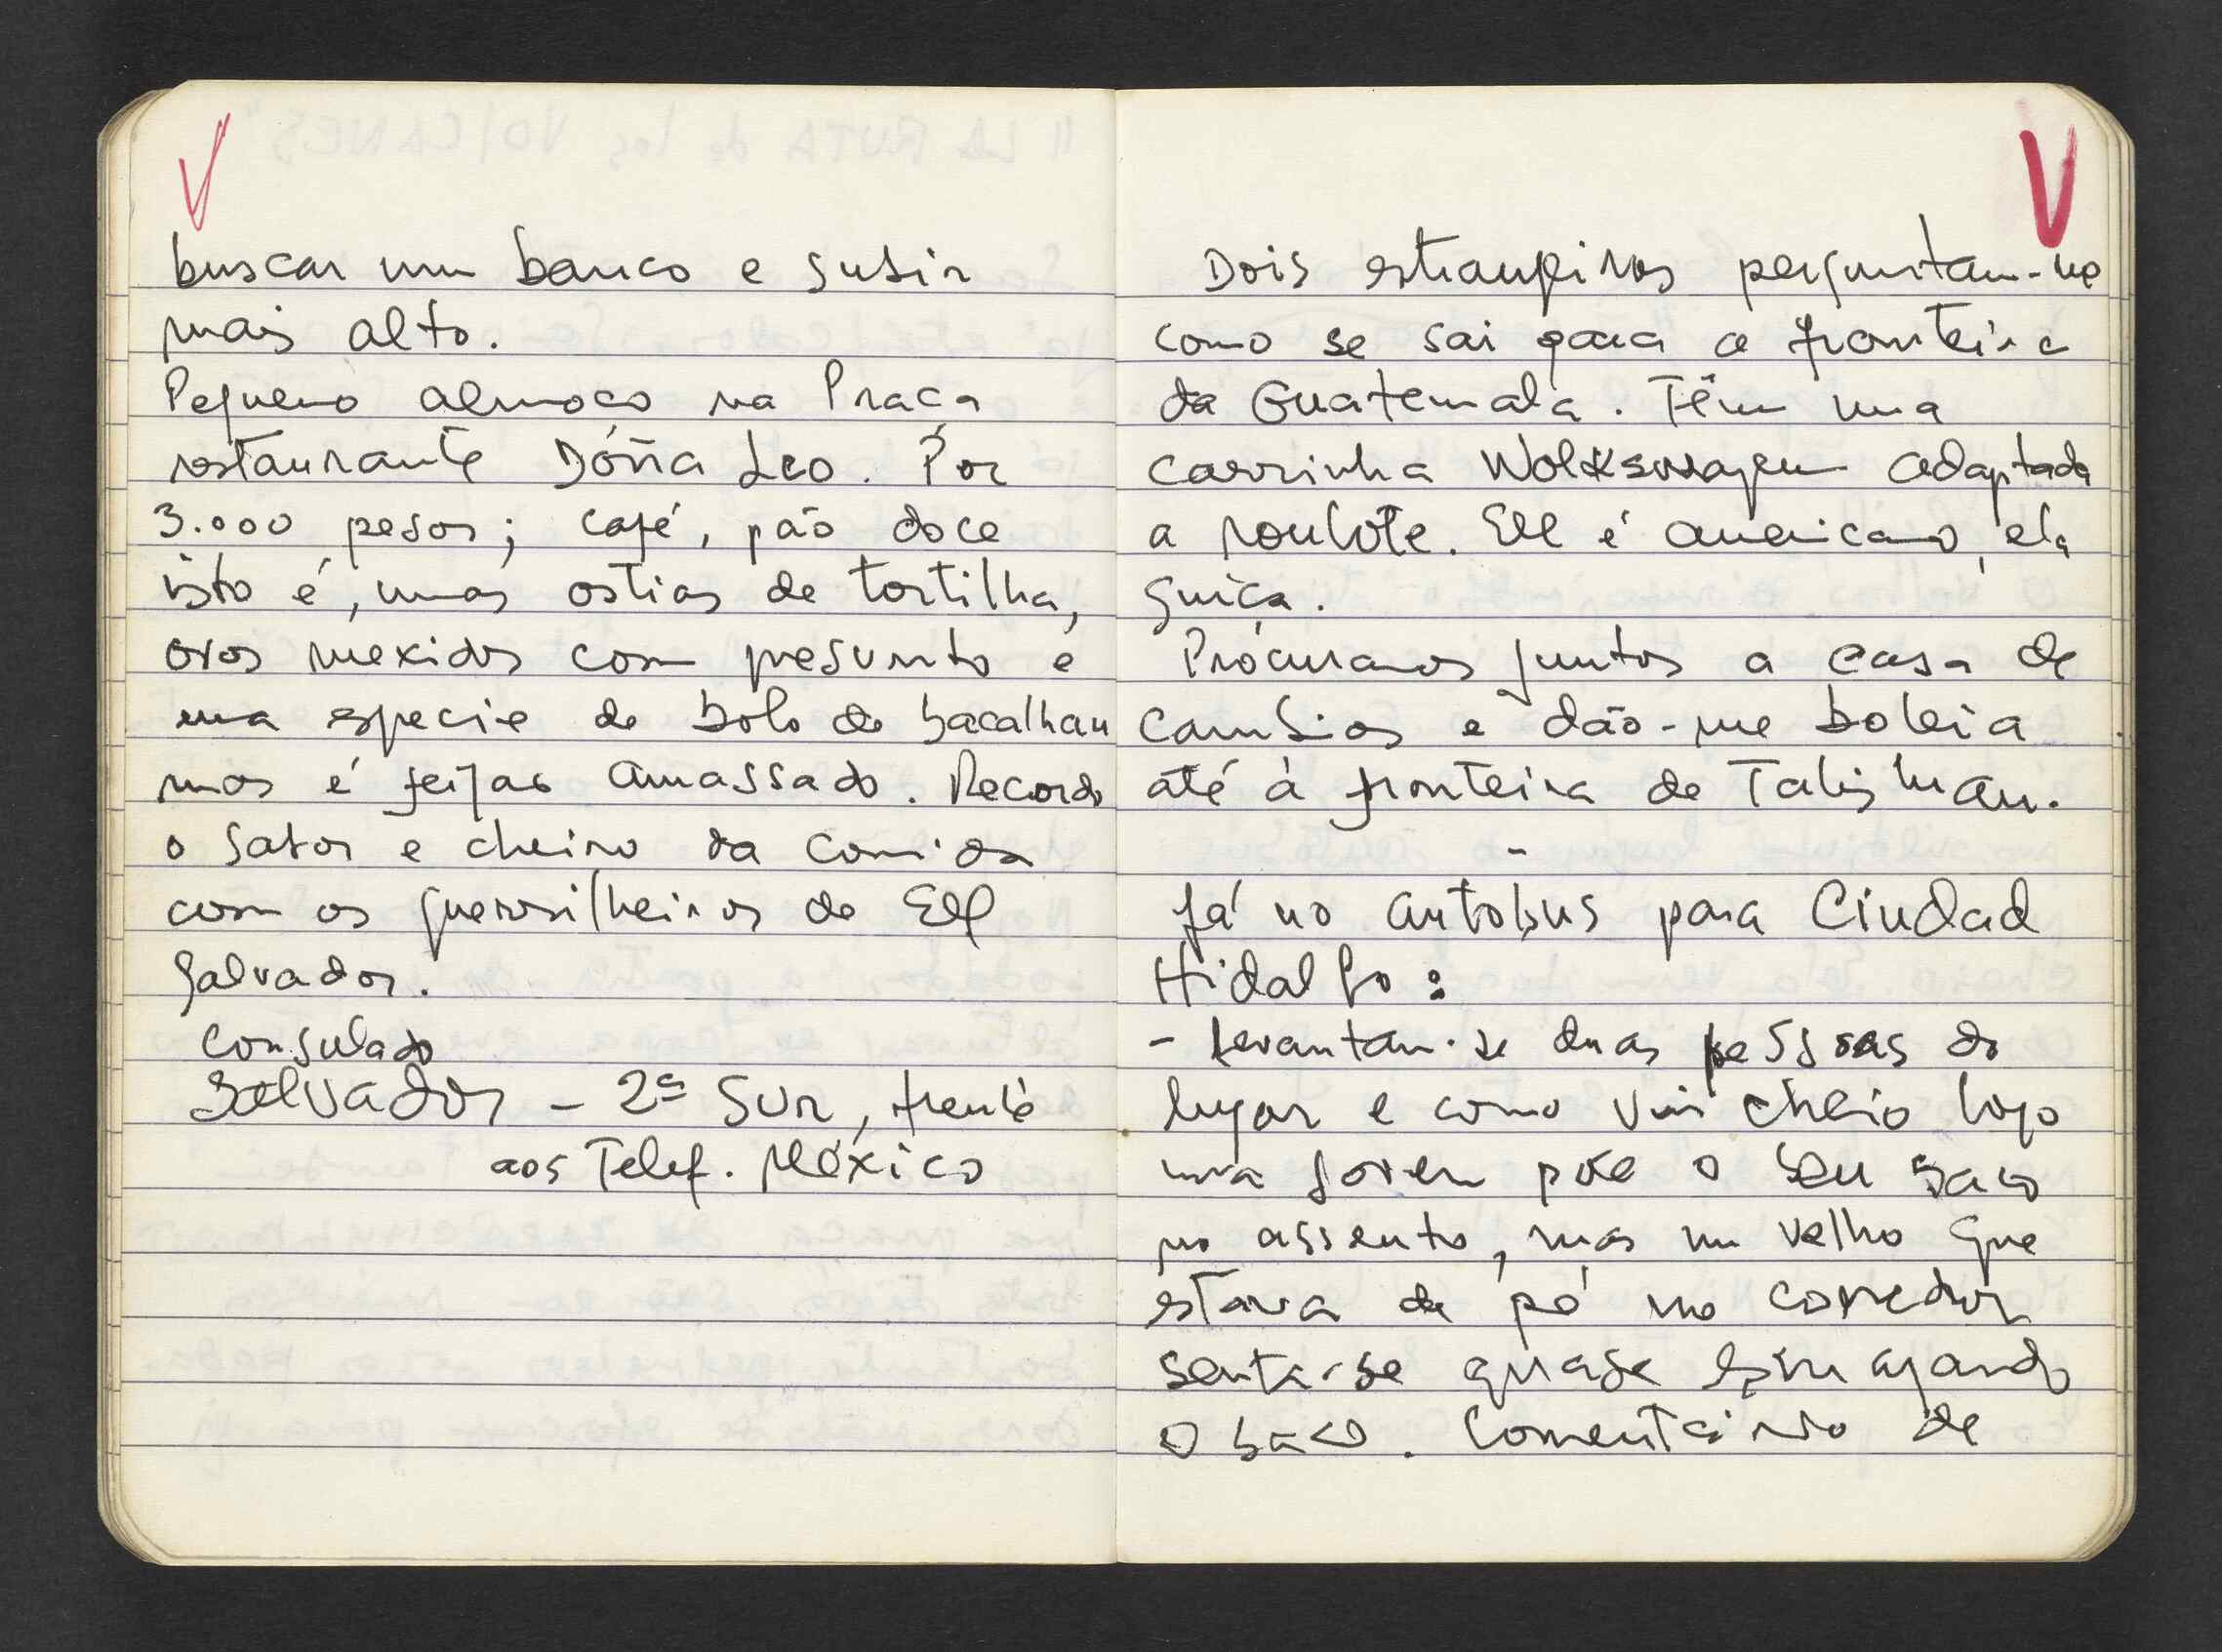 V
buscar um banco e subir
mais alto.
Pequeno almoço na Praça
restaurante Dóña Leo. Por
3.000 pesos; café, pão doce
isto é, umas ostias de tortilha,
ovos mexidos com presunto e
uma especie de bolo de bacalhau
mas é feijao amassado. Recordo
o sabor e cheiro da comida
com os guerrilheiros de El
Salvador.
Consulado
Salvador – 2ª Sur, frente
aos Telef. México
V
Dois estrangeiros perguntam-me
como se sai para a fronteira
da Guatemala. Têm uma
carrinha Wolkswagen adaptada
a roulote. Ele é americano, ela
Suiça.
Procuramos juntos a casa de
cambios e dão-me boleia
até à fronteira de Talisman.
-
Já no autobus para Ciudad
Hidalgo:
- Levantam-se duas pessoas do
lugar e como vai cheio logo
uma jovem põe o seu saco
no assento, mas um velho que
estava de pé no corredor
senta-se quase esmagando
o saco. Comentário de